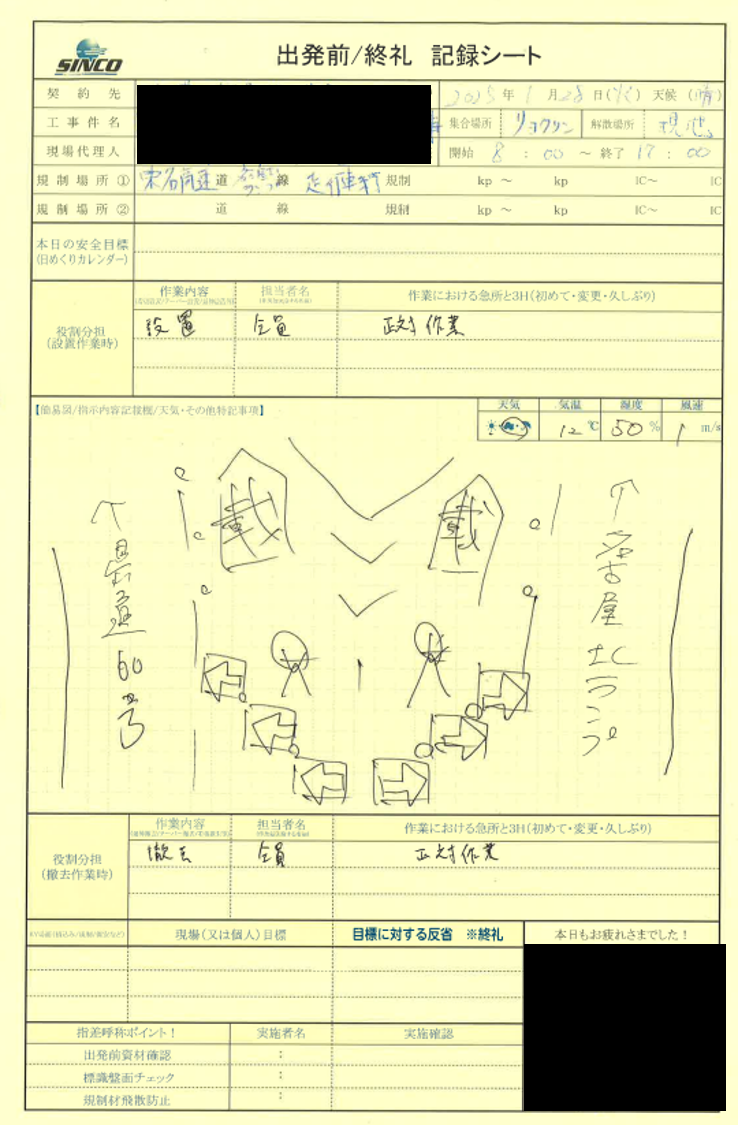 SINCO
出発前/終礼 記録シート
契約先 2025年 1月28日(火) 天候(晴)
工事件名 集合場所 リョクシン 解散場所 現地
現場代理人 開始 8:00 ~ 終了 17:00
規制場所① 東名高速道 線 走行車線 規制 kp ~ kp IC~ IC
規制場所② 道 線 規制 kp ~ kp IC~ IC
本日の安全目標
(日めくりカレンダー)
役割分担
(設置作業時)
作業内容 担当者名 作業における急所と3H(初めて・変更・久しぶり)
設置 全員 正対作業
【簡易図/指示内容記載欄/天気・その他特記事項】
天気 気温 湿度 風速
12℃ 50% 1m/s
載 載
↑県道60号
↑名古屋北ランプ
役割分担
(撤去作業時)
作業内容 担当者名 作業における急所と3H(初めて・変更・久しぶり)
撤去 全員 正対作業
現場(又は個人)目標 目標に対する反省 ※終礼 本日もお疲れさまでした!
指差呼称ポイント! 実施者名 実施確認
出発前資材確認 :
標識盤面チェック :
規制材飛散防止 :